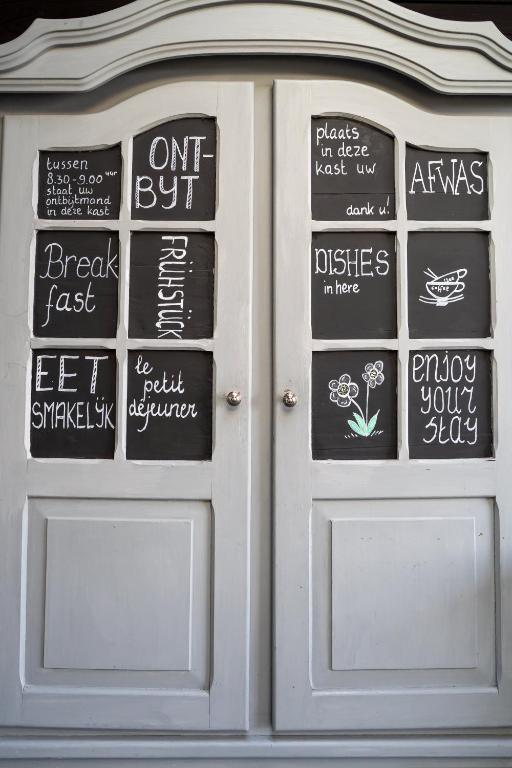 tussen
8.30-9.00 uur
staat uw
ontbijtmand
in deze kast
ONT-
BYT
Break
fast
FRÜHSTÜCK
EET
SMAKELYK
le
petit
dejeuner
plaats
in deze
kast uw
dank u!
AFWAS
DISHES
in here
coffee
enjoy
your
stay